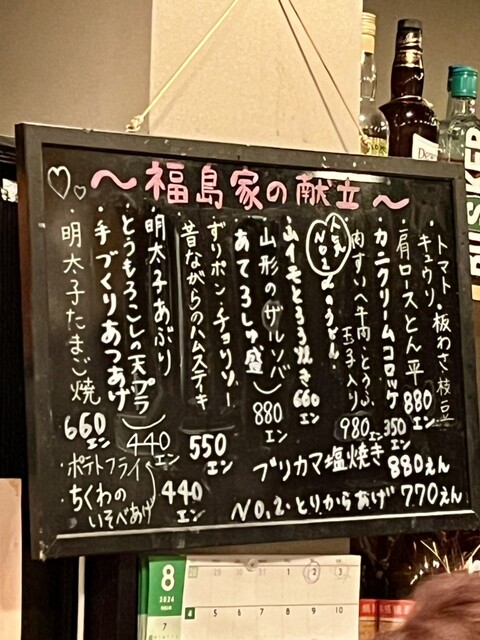 ～福島家の献立～
・トマト・板わさ・枝豆
キュウリ
・肩ロースとん平 880エン
・カニクリームコロッケ 350エン
肉すい(牛肉・とうふ・
玉子入り) 980エン
人気No.1
のうどん
・山イモとろろ焼き 660エン
・山形のザルソバ
・あてろしゅ盛
880エン
・ずりポン・チョリソー
・昔ながらのハムステーキ
550エン
・明太子あぶり
・とうもろこしの天プラ
・手づくりあつあげ
440エン
・明太子たまご焼
660エン
ブリカマ塩焼き 880えん
No.2・とりからあげ 770えん
・ポテトフライ
・ちくわの
いそべあげ
440エン
8
2024
1 2 3
4 5 6 7 8 9 10
7